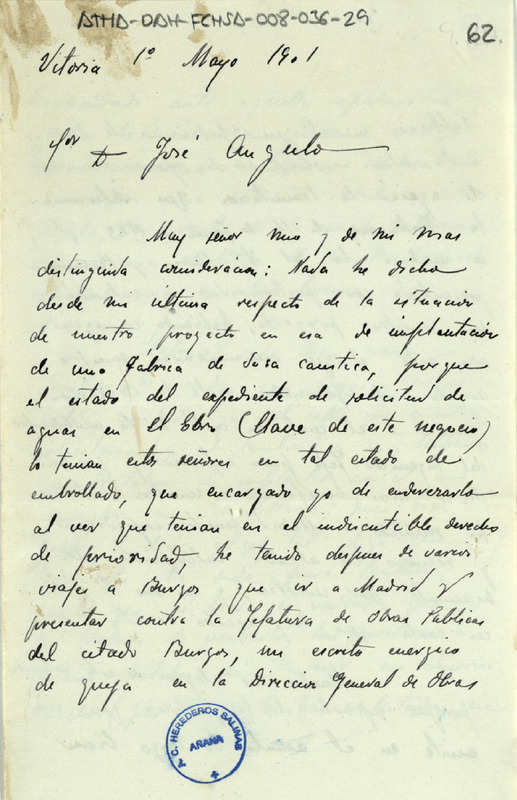 ATHA-DAH-FCHSA-008-036-29
62.
Vitoria 1º Mayo 1901
Sor D José Angulo
Muy señor mio y de mi mas
distinguida consideracion: Nada he dicho
desde mi ultima respecto de la situacion
de nuestro proyecto en esa de implantacion
de una fábrica de Sosa caustica, porque
el estado del expediente de solicitud de
aguas en el Ebro (Llave de este negocio)
lo tenian estos señores en tal estado de
embrollado, que encargado yo de enderezarlo
al ver que tenian en el indiscutible derecho
de prioridad, he tenido despues de varios
viajes a Burgos que ir a Madrid y
presentar contra la Jefatura de Obras Publicas
del citado Burgos, un escrito energico
de queja en la Direccion General de Obras
C. HEREDEROS SALINAS
AÑANA